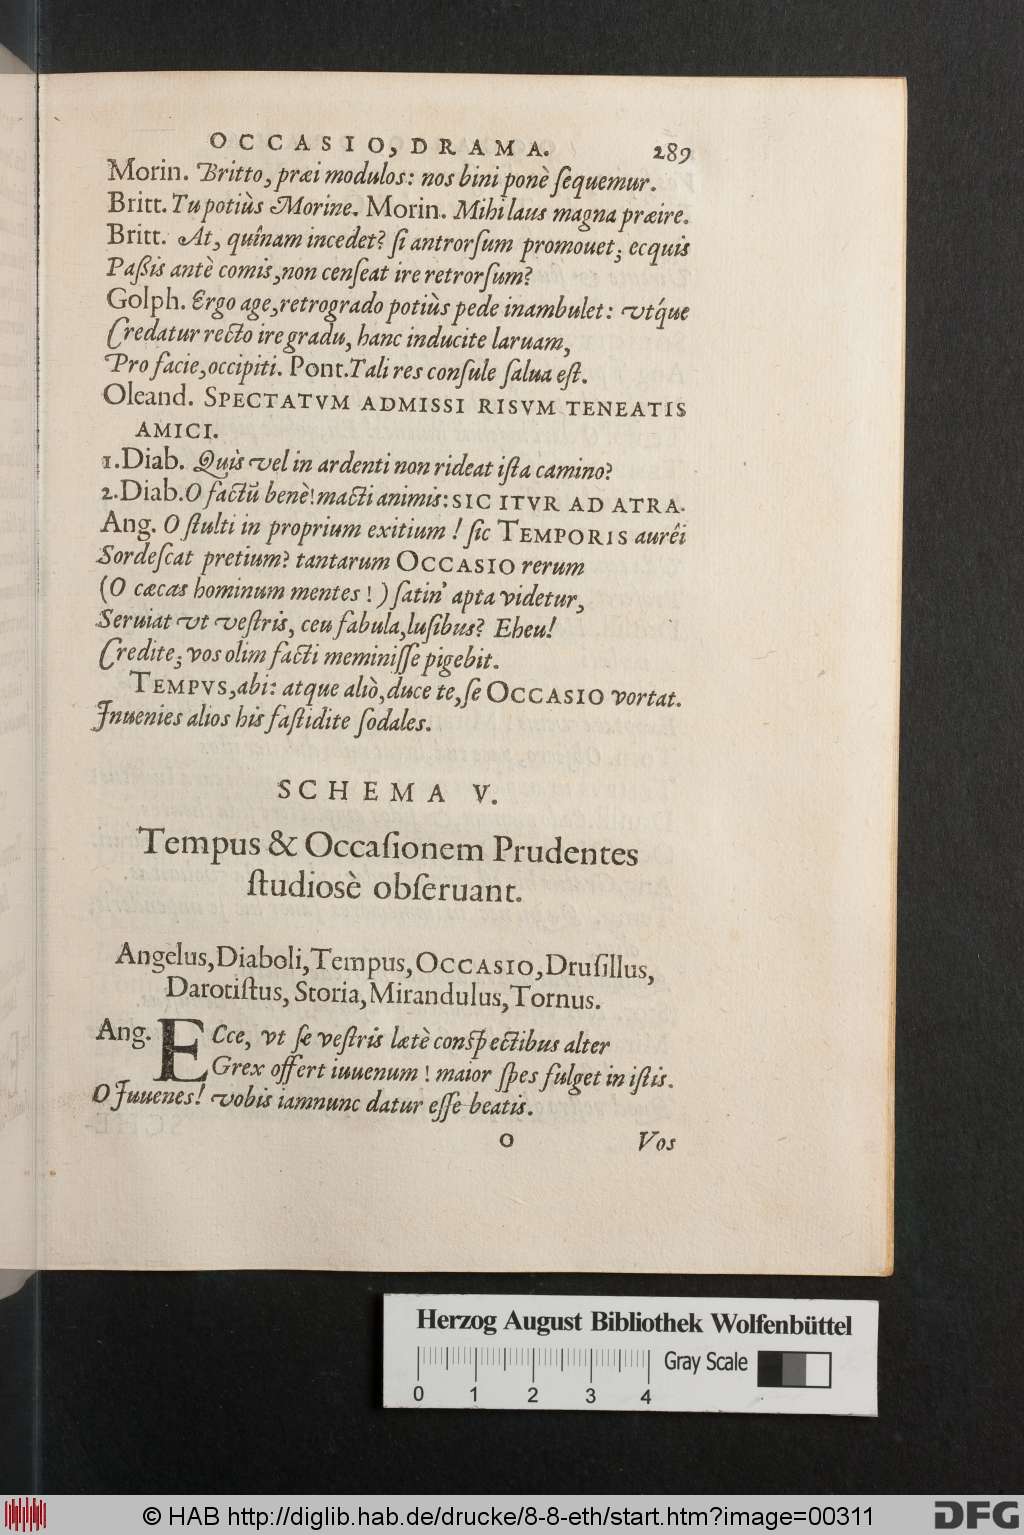 OCCASIO, DRAMA. 289
Morin. Britto, præi modulos: nos bini ponè ſequemur.
Britt. Tu potiùs Morine. Morin. Mihi laus magna præire.
Britt. At, quînam incedet? ſi antrorſum promouet; ecquis
Paßis antè comis, non cenſeat ire retrorſum?
Golph. Ergo age, retrogrado potiùs pede inambulet: vtq́ue
Credatur recto ire gradu, hanc inducite laruam,
Pro facie, occipiti. Pont. Tali res conſule ſalua eſt.
Oleand. SPECTATVM ADMISSI RISVM TENEATIS
AMICI.
1. Diab. Quis vel in ardenti non rideat iſta camino?
2. Diab. O factũ benè! macti animis: SIC ITVR AD ATRA.
Ang. O ſtulti in proprium exitium! ſic TEMPORIS aurêi
Sordeſcat pretium? tantarum OCCASIO rerum
(O cæcas hominum mentes!) ſatin' apta videtur,
Seruiat vt veſtris, ceu fabula, luſibus? Eheu!
Credite; vos olim facti meminiſſe pigebit.
TEMPVS, abi: atque aliò, duce te, ſe OCCASIO vortat.
Inuenies alios his faſtidite ſodales.
SCHEMA V.
Tempus & Occaſionem Prudentes
ſtudiosè obſeruant.
Angelus, Diaboli, Tempus, OCCASIO, Druſillus,
Darotiſtus, Storia, Mirandulus, Tornus.
Ang. ECce, vt ſe veſtris lætè conſpectibus alter
Grex offert iuuenum! maior ſpes fulget in iſtis.
O Iuuenes! vobis iamnunc datur eſſe beatis.
O Vos
Herzog August Bibliothek Wolfenbüttel
Gray Scale
0 1 2 3 4
© HAB http://diglib.hab.de/drucke/8-8-eth/start.htm?image=00311
DFG